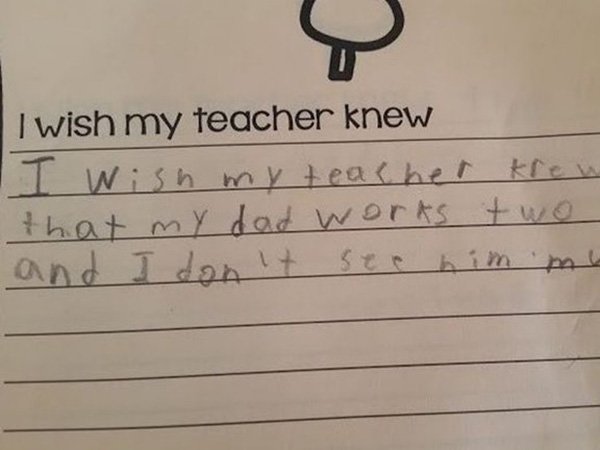 I wish my teacher knew
I wish my teacher knew
that my dad works two
and I don't see him